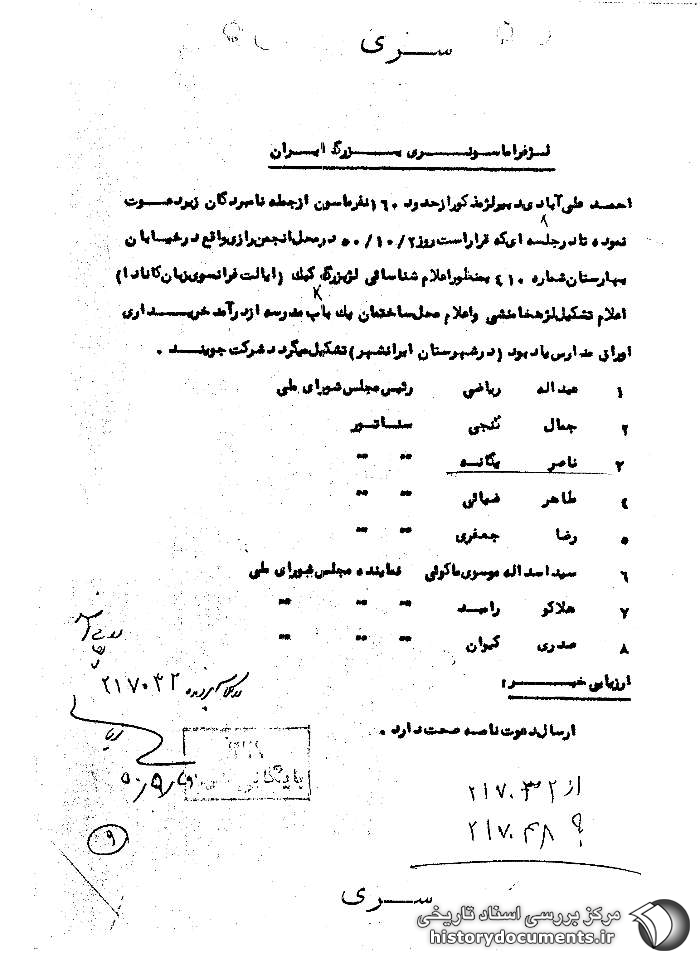 سری
لژ فراماسونری بزرگ ایران
احمد علی‌آبادی دبیر لژ مذکور از حدود ۱۶۰ نفر ماسون از جمله نامبردگان زیر دعوت
نموده تا در جلسه ای که قرار است روز ۵۰/۱۰/۲ در محل انجمن رازی واقع در خیابان
بهارستان شماره ۴۱۰ بمنظور اعلام شناسائی لژ بزرگ کبک (ایالت فرانسوی زبان کانادا)
اعلام تشکیل لژ هخامنشی و اعلام محل ساختمان یک باب مدرسه از درآمد خریداری
اوراق مدارس یاد بود (در شهرستان ایرانشهر) تشکیل میگردد شرکت جویند .
۱ عبداله ریاضی رئیس مجلس شورای ملی
۲ جمال گنجی سناتور
۳ ناصر یگانه " "
۴ طاهر ضیائی " "
۵ رضا جعفری " "
۶ سید اسداله موسوی ماکوئی نماینده مجلس شورای ملی
۷ هلاکو رامبد " " "
۸ صدری کیوان " " "
ارزیابی خبر :
ارسال دعوت نامه صحت دارد .
۲۱۷۰۳۲
بایگانی
از ۲۱۷۰۳۲
۲۱۷۰۴۸
۹
سری
مرکز بررسی اسناد تاریخی
historydocuments.ir